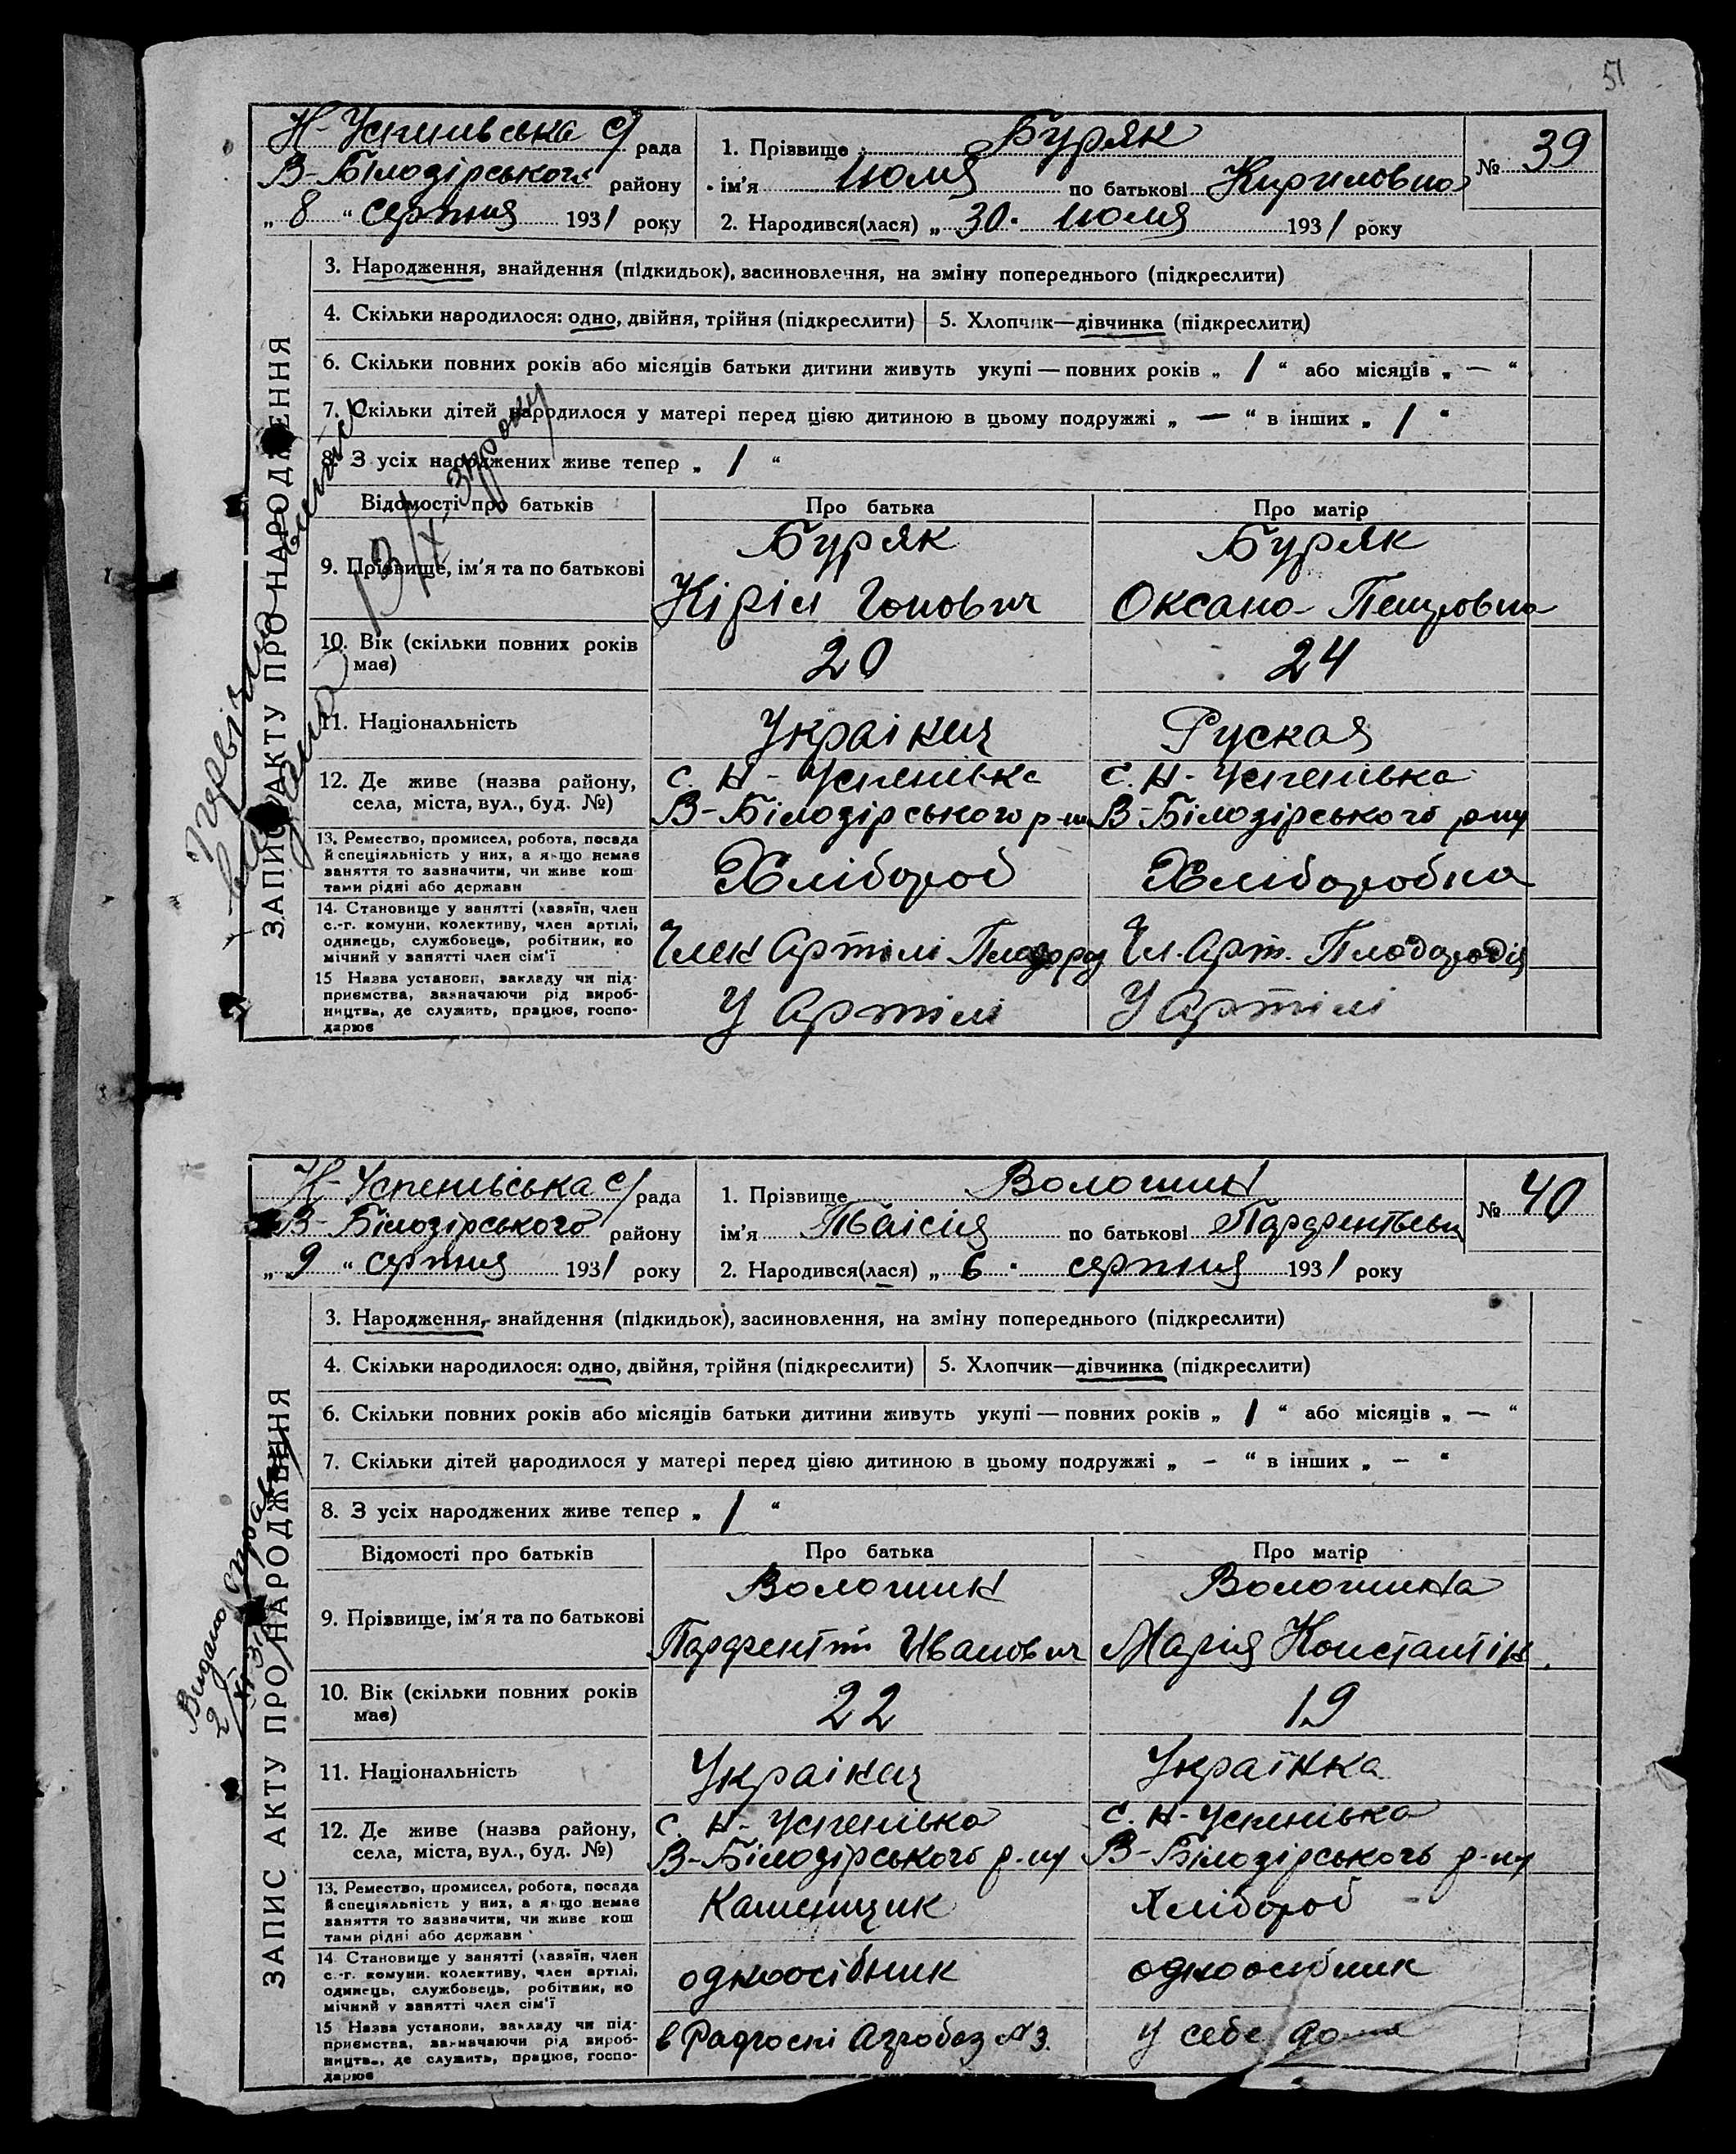 51
Н-Успинівська с/рада
В-Білозірського району
„ 8 “ серпня 1931 року
1. Прізвище Буряк
№ 39
ім'я Июля по батькові Кириловна
2. Народився(лася) „ 30 · июля 1931 року
ЗАПИС АКТУ ПРО НАРОДЖЕННЯ
3. Народження, знайдення (підкидьок), засиновлення, на зміну попереднього (підкреслити)
4. Скільки народилося: одно, двійня, трійня (підкреслити) 5. Хлопчик—дівчинка (підкреслити)
6. Скільки повних років або місяців батьки дитини живуть укупі — повних років „ 1 “ або місяців „ — “
7. Скільки дітей народилося у матері перед цією дитиною в цьому подружжі „ — “ в інших „ 1 “
8. З усіх народжених живе тепер „ 1 “
Відомості про батьків Про батька Про матір
9. Прізвище, ім'я та по батькові
Буряк
Кіріл
Буряк
Оксана Петровна
10. Вік (скільки повних років має) 20 24
11. Національність Українец Руская
12. Де живе (назва району,
села, міста, вул., буд. №)
с. Н-Успенівка
В-Білозірського р-ну
с. Н-Успенівка
В-Білозірського р-ну
13. Ремество, промисел, робота, посада
й спеціяльність у них, а якщо немає
заняття то зазначити, чи живе кош
тами рідні або держави
Хлібороб
Хліборобка
14. Становище у занятті (хазяїн, член
с.-г. комуни, колективу, член артілі,
одинець, службовець, робітник, по
мічний у занятті член сім'ї
Член Артілі
Чл. Арт. Плодородія
15 Назва установи, закладу чи під-
приємства, зазначаючи рід вироб-
ництва, де служить, працює, госпо-
дарює
У Артілі
У Артілі
Н-Успенівська с/рада
В-Білозірського району
„ 9 “ серпня 1931 року
1. Прізвище Волошин
№ 40
ім'я Таісія по батькові
2. Народився(лася) „ 6 · серпня 1931 року
ЗАПИС АКТУ ПРО НАРОДЖЕННЯ
Видано
3. Народження, знайдення (підкидьок), засиновлення, на зміну попереднього (підкреслити)
4. Скільки народилося: одно, двійня, трійня (підкреслити) 5. Хлопчик—дівчинка (підкреслити)
6. Скільки повних років або місяців батьки дитини живуть укупі — повних років „ 1 “ або місяців „ — “
7. Скільки дітей народилося у матері перед цією дитиною в цьому подружжі „ – “ в інших „ – “
8. З усіх народжених живе тепер „ 1 “
Відомості про батьків Про батька Про матір
9. Прізвище, ім'я та по батькові
Волошин
Парфентій Иванович
Волошина
Марія Константін.
10. Вік (скільки повних років має) 22 19
11. Національність Українец Українка
12. Де живе (назва району,
села, міста, вул., буд. №)
с. Н-Успенівка
В-Білозірського р-ну
с. Н-Успенівка
В-Білозірського р-ну
13. Ремество, промисел, робота, посада
й спеціяльність у них, а якщо немає
заняття то зазначити, чи живе кош
тами рідні або держави
Каменщик
Хлібороб
14. Становище у занятті (хазяїн, член
с.-г. комуни, колективу, член артілі,
одинець, службовець, робітник, по
мічний у занятті член сім'ї
одноосібник
одноосібник
15 Назва установи, закладу чи під-
приємства, зазначаючи рід вироб-
ництва, де служить, працює, госпо-
дарює
в Радгоспі Агробаз №3.
У себе дома